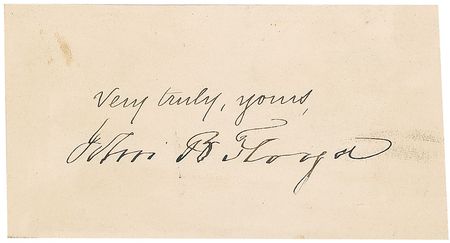 Very truly, yours,
John B Floyd